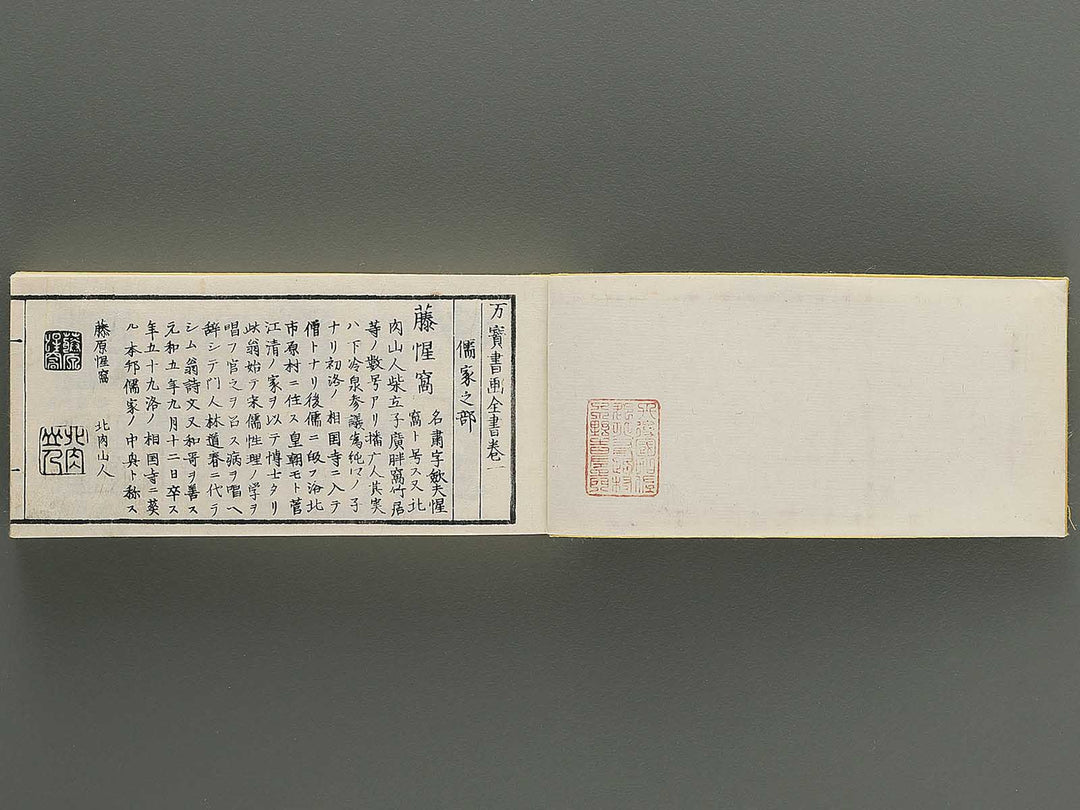 万寳書画全書巻一
儒家之部
藤惺窩
名肅字歛夫惺
窩ト号ス又北
肉山人柴立子廣胖窩竹居
等ノ数号アリ播广人其実
ハ下冷泉参議為純マノ子
ナリ初洛ノ相国寺ニ入テ
僧トナリ後儒ニ皈フ洛北
市原村ニ住ス皇朝モト菅
江清ノ家ヲ以テ博士タリ
此翁始テ宋儒性理ノ学ヲ
唱フ官之ヲ召ス病ヲ唱ヘ
辞シテ門人林道春ニ代ラ
シム翁詩文又和哥ヲ善ス
元和五年九月十二日卒ス
年五十九洛ノ相国寺ニ葬
ル本邦儒家ノ中興ト称ス
藤原惺窩
北肉山人
藤原惺窩
北肉山人